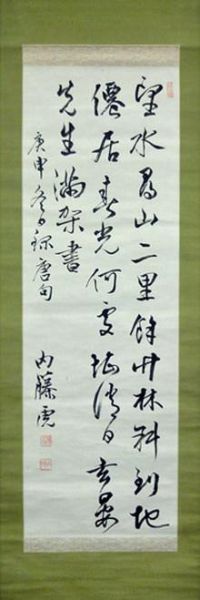 望水尋山二里餘竹林斜到地
僊居秋光何處堪消日玄晏
先生滿架書
庚申冬日錄唐句
内藤虎